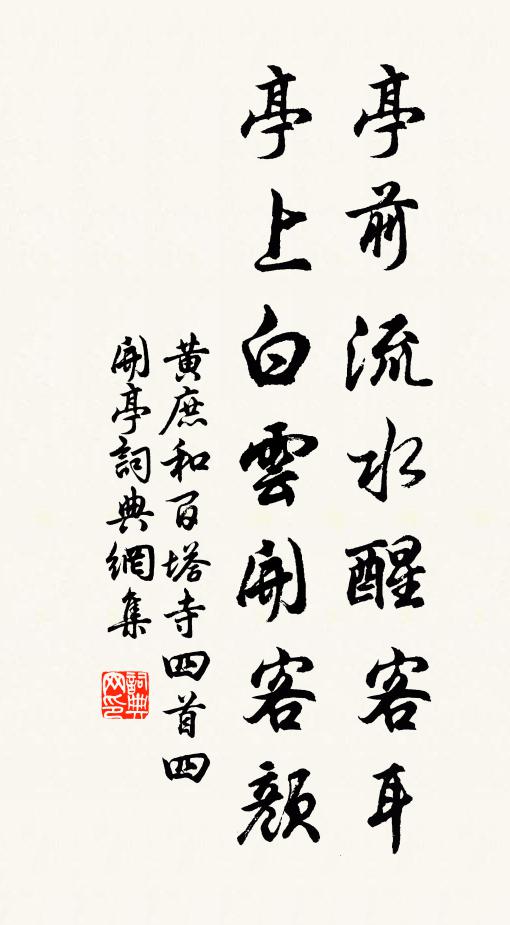 亭前流水醒客耳
亭上白雲開客顏
黃庶和百塔寺四首四
開亭詞典網集
詞典
网印